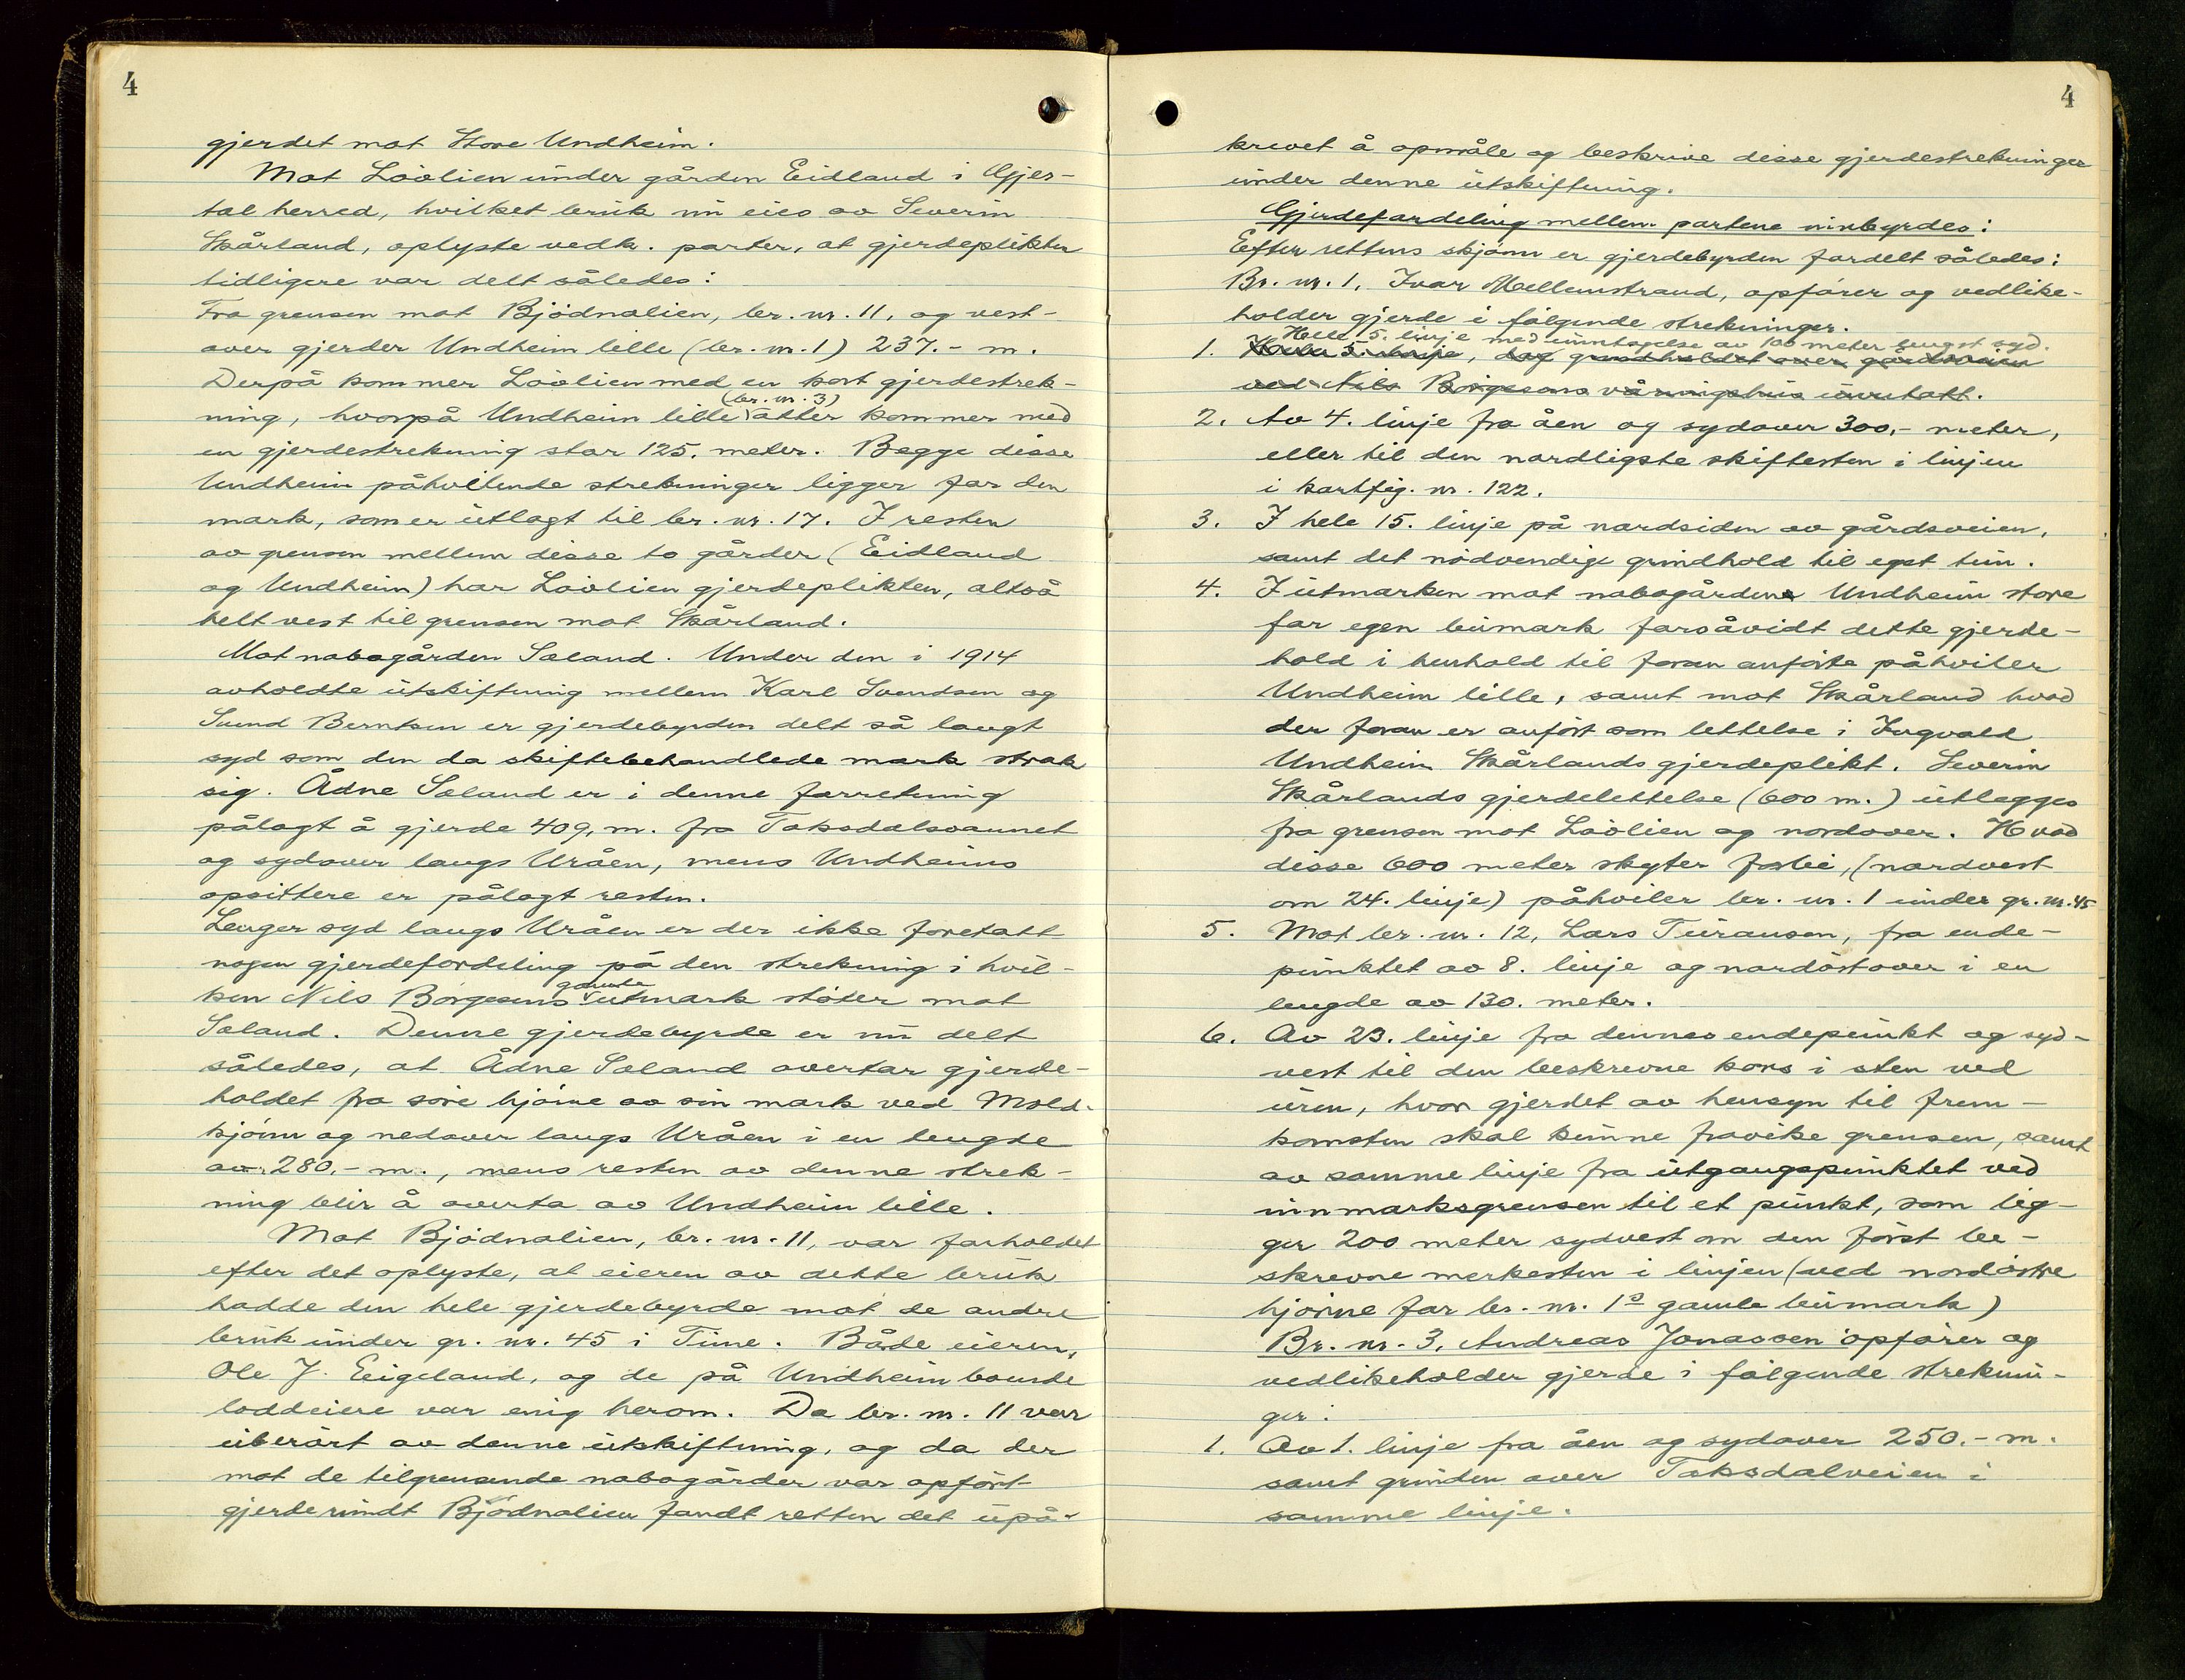 4
gjerdet mot Store Undheim.
Mot Løølien under gården Eidland i Gjes-
tal herred, hvilket bruk nu eies av Severin
Skårland, oplyste vedk. parter, at gjerdeplikten
tidligere var delt således:
Fra grensen mot Bjødnalien, br. nr. 11, og vest-
over gjerder Undheim lille (br. nr. 1) 237.- m.
Derpå kommer Løølien med en kort gjerdestrek-
(br. nr. 3)
ning, hvorpå Undheim lille atter kommer med
en gjerdestrekning stor 125. meter. Begge disse
Undheim påhvilende strekninger ligger for den
mark, som er utlagt til br. nr. 17. I resten
av grensen mellem disse to gårder (Eidland
og Undheim) har Løølien gjerdeplikten, altså
helt vest til grensen mot Skårland.
Mot nabogården Søland. Under den i 1914
avholdte utskiftning mellem Karl Svendsen og
Svend Berntsen er gjerdebyrden delt så langt
syd som den da skiftebehandlede mark strak
sig. Ådne Søland er i denne forretning
pålagt å gjerde 409, m. fra Taksdalsvannet
og sydover langs Uråen, mens Undheims
opsittere er pålagt resten.
Lenger syd langs Uråen er der ikke foretatt
nogen gjerdefordeling på den strekning i hvil-
gamle
ken Nils Børgesens utmark støter mot
Søland. Denne gjerdebyrde er nu delt
således, at Ådne Søland overtar gjerde-
holdet fra søre hjørne av sin mark ved Mold-
kjønn og nedover langs Uråen i en lengde
av 280.- m., mens resten av denne strek-
ning blir å overta av Undheim lille.
Mot Bjødnalien, br. nr. 11, var forholdet
efter det oplyste, at eieren av dette bruk
hadde den hele gjerdebyrde mot de andre
bruk under gr. nr. 45 i Time. Både eieren,
Ole J. Eigeland, og de på Undheim boende
loddeiere var enig herom. Da br. nr. 11 var
uberørt av denne utskiftning, og da der
mot de tilgrensende nabogårder var opført
gjerde rundt Bjødnalien fandt retten det upå-
4
krevet å opmåle og beskrive disse gjerdestrekninger
under denne utskiftning.
Gjerdefordeling mellem partene innbyrdes:
Efter rettens skjønn er gjerdebyrden fordelt således:
Br. nr. 1, Ivar Mellemstrand, opfører og vedlike-
holder gjerde i følgende strekninger.
Hele 5. linje med unntagelse av 100 meter lengst syd.
1. Hele 5. linje, dog grindholdet over gårdsveien
ved Nils Børgesens våningshus unntatt.
2. Av 4. linje fra åen og sydover 300,- meter,
eller til den nordligste skiftesten i linjen
i kartfig. nr. 122.
3. I hele 15. linje på nordsiden av gårdsveien,
samt det nødvendige grindhold til eget tun.
4. I utmarken mot nabogården Undheim store
for egen bumark forsåvidt dette gjerde-
hold i henhold til foran anførte påhviler
Undheim lille, samt mot Skårland hvad
der foran er anført som lettelse i Ingvald
Undheim Skårlands gjerdeplikt. Severin
Skårlands gjerdelettelse (600 m.) utlegges
fra grensen mot Løølien og nordover. Hvad
disse 600 meter skyter forbi, (nordvest
om 24. linje) påhviler br. nr. 1 under gr. nr. 45
5. Mot br. nr. 12, Lars Turansen, fra ende-
punktet av 8. linje og nordostover i en
lengde av 130. meter.
6. Av 23. linje fra dennes endepunkt og syd-
vest til den beskrevne kors i sten ved
uren, hvor gjerdet av hensyn til frem-
komsten skal kunne fravike grensen, samt
av samme linje fra utgangspunktet ved
innmarksgrensen til et punkt, som lig-
ger 200 meter sydvest om den først be-
skrevne merkesten i linjen (ved nordøstre
hjørne for br. nr. 1s gamle bumark)
Br. nr. 3, Andreas Jonassen opfører og
vedlikeholder gjerde i følgende streknin-
ger:
1. Av 1. linje fra åen og sydover 250.- m.
samt grinden over Taksdalveien i
samme linje.